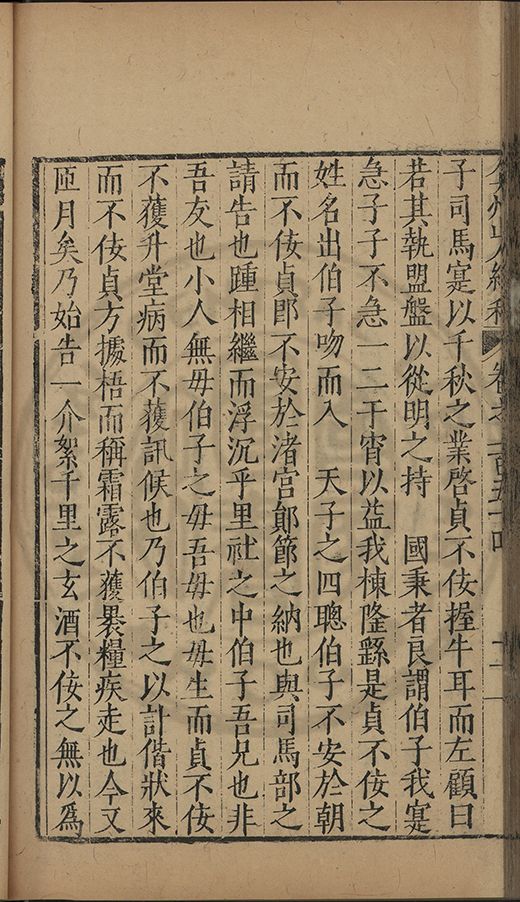 子司馬寔以千秋之業啓貞不佞握牛耳而左顧曰
若其執盟盤以從明之持　國秉者良謂伯子我寔
急子子不急一二干宵以葢我棟隆繇是貞不佞之
姓名出伯子吻而入　天子之四聰伯子不安於朝
而不佞貞郎不安於渚宮鄖節之納也與司馬部之
請告也踵相繼而浮沉乎里社之中伯子吾兄也非
吾友也小人無毋伯子之毋吾毋也毋生而貞不佞
不獲升堂病而不獲訊候也乃伯子之以訃偕狀來
而不佞貞方據梧而稱霜露不獲褁糧疾走也今又
匝月矣乃始告一介絮千里之玄酒不佞之無以爲